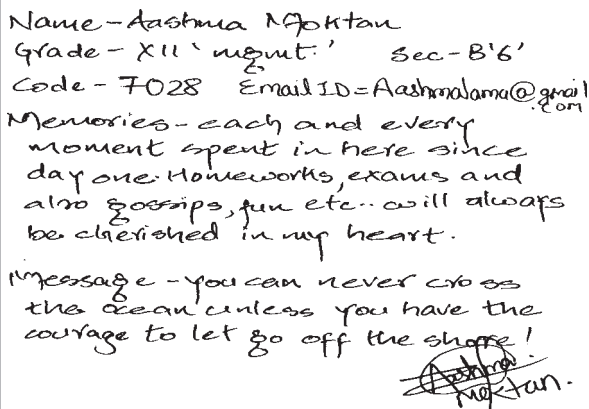 Name - Aashma Moktan
Grade - XII 'mgmt.' Sec - B'6'
Code - 7028 Email ID = Aashmalama@gmail
.com
Memories - each and every
moment spent in here since
day one. Homeworks, exams and
also gossips, fun etc.. will always
be cherished in my heart.
Message - you can never cross
the ocean unless you have the
courage to let go off the shore!
Aashma
Moktan.